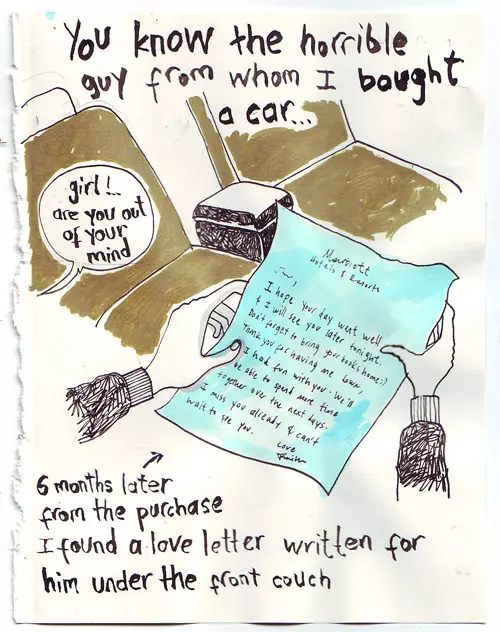 You know the horrible
guy from whom I bought
a car...
girl!..
are you out
of your
mind
Marriott
Hotels & Resorts
I hope your day went well
& I will see you later tonight.
Don't forget to bring your books home :)
Thank you for having me down
I had fun with you. We'll
be able to spend more time
together over the next days.
I miss you already & can't
wait to see you.
Love
6 months later
from the purchase
I found a love letter written for
him under the front couch